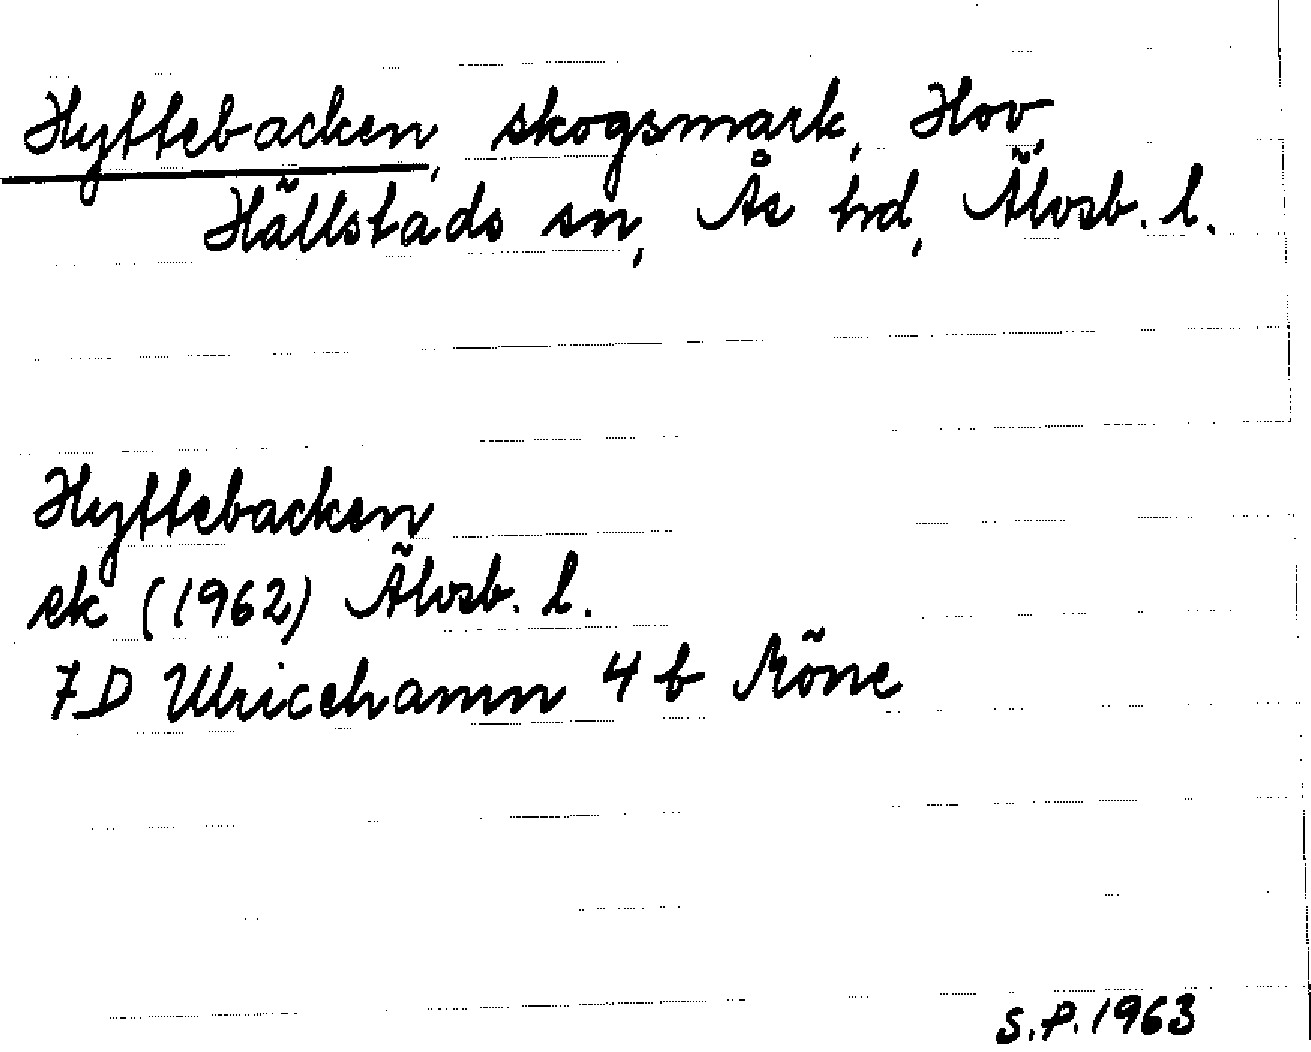 Hyttebacken, skogsmark, Hov,
Hällstads sn, Ås hd, Älvsb. l.
Hyttebacken
ek (1962) Älvsb. l.
7D Ulricehamn 4 b Möne
S.P. 1963